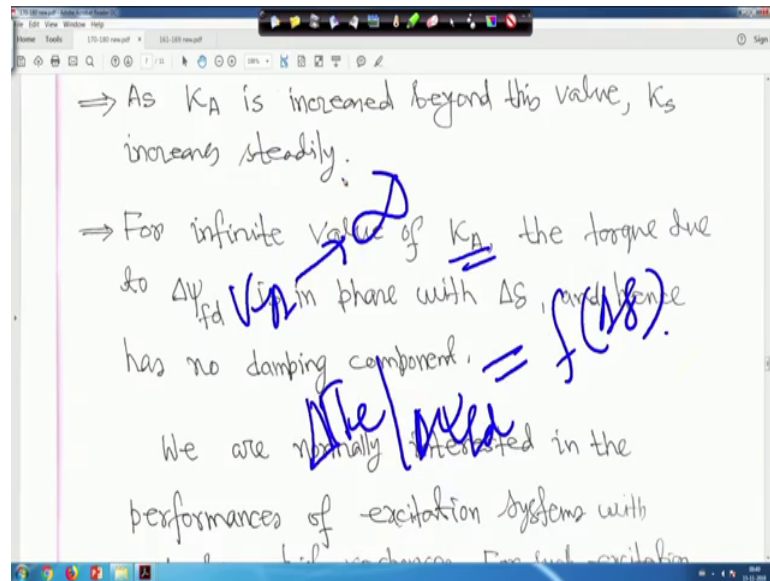 170-180 new.pdf - Adobe Acrobat Reader DC
File Edit View Window Help
Home Tools 170-180 new.pdf × 161-169 new.pdf Sign
7 / 11
⇒ As K_A is increased beyond this value, K_S
increases steadily.
⇒ For infinite value of K_A, the torque due
to Δψ_fd is in phase with Δδ, and hence
has no damping component.
K_A → ∞
ΔTe | Δψfd = f(Δδ).
We are normally interested in the
performances of excitation systems with